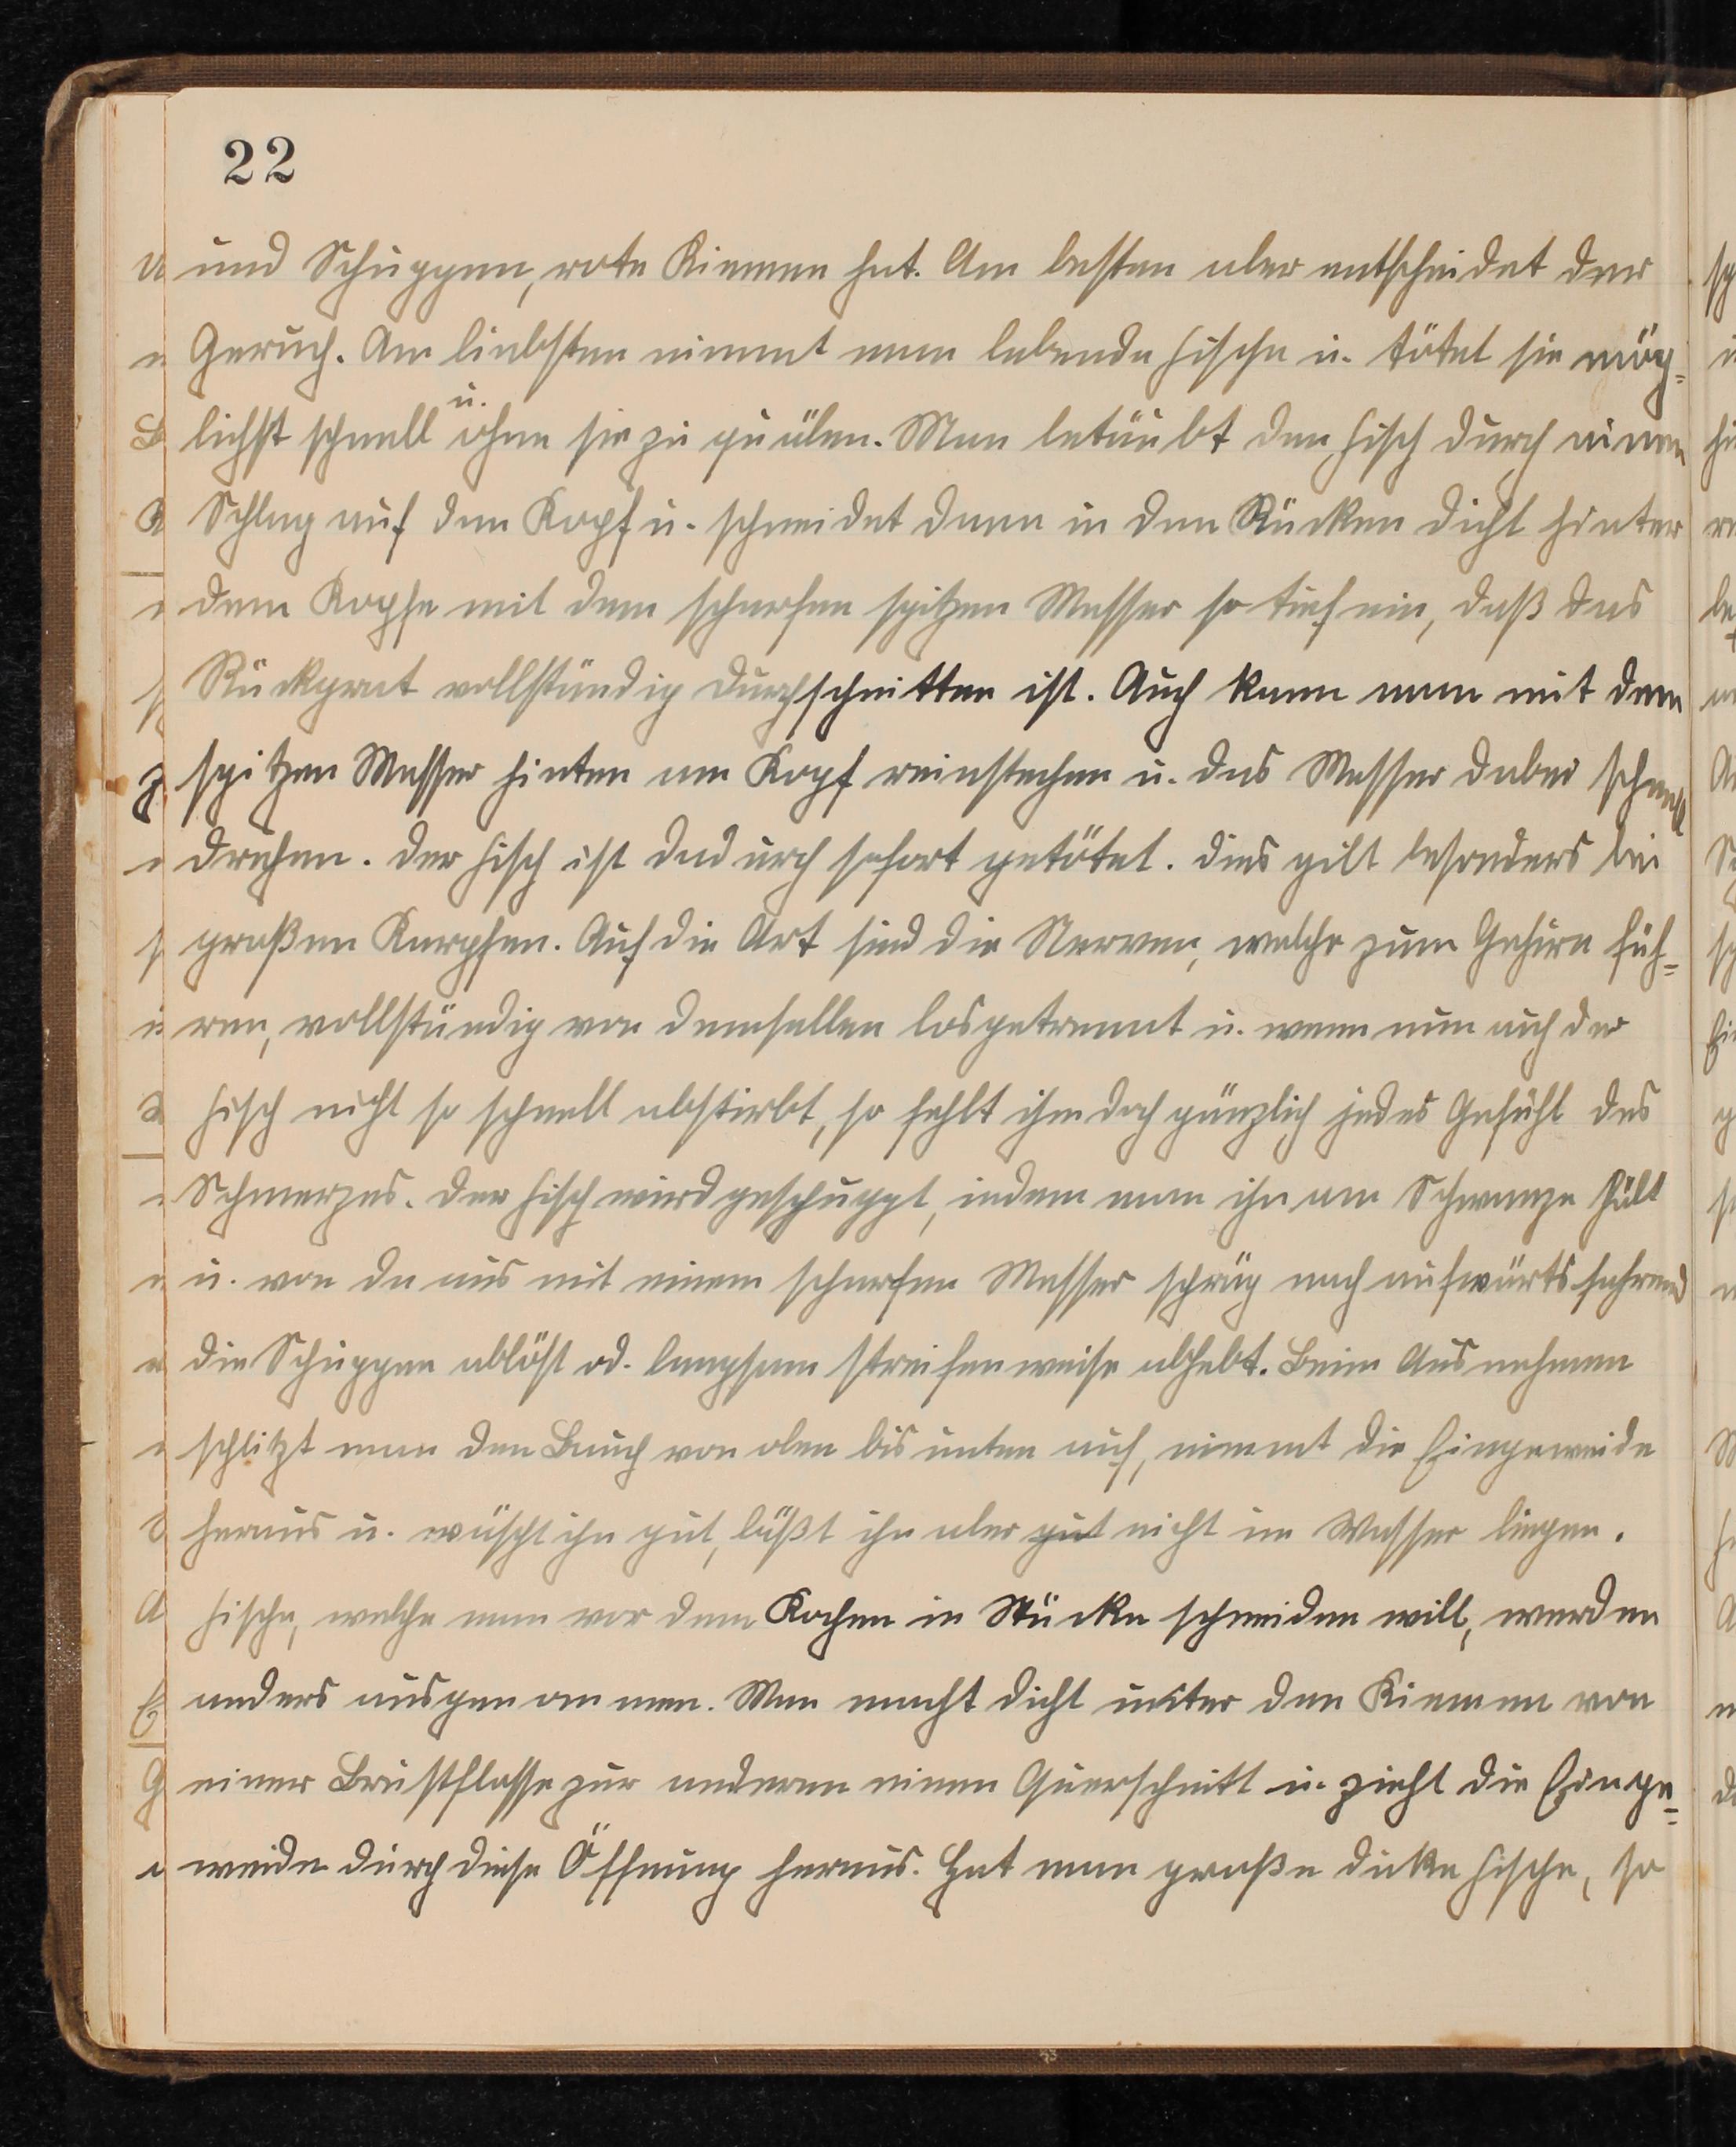 22
und Schuppen, rote Kiemen hat. Am besten aber entscheidet der
Geruch. Am liebsten nimmt man lebende Fische u. tötet sie mög=
lichst schnell u. ohne sie zu quälen. Man betäubt den Fisch durch einen
Schlag auf den Kopf u. schneidet dann in den Rücken dicht hinter
dem Kopfe mit dem scharfen spitzen Messer so tief ein, daß das
Rückgrat vollständig durchschnitten ist. Auch kann man mit dem
spitzen Messer hinten am Kopf reinstechen u. das Messer dabei schnell
drehen. Der Fisch ist dadurch sofort getötet. Dies gilt besonders bei
großen Karpfen. Auf die Art sind die Nerven, welche zum Gehirn füh=
ren, vollständig von demselben losgetrennt u. wenn nun auch der
Fisch nicht so schnell abstirbt, so fehlt ihm doch gänzlich jedes Gefühl des
Schmerzes. Der Fisch wird geschuppt, indem man ihn am Schwanze hält
u. von da aus mit einem scharfen Messer schräg nach aufwärts fahrend
die Schuppen ablöst od. langsam streifenweise abhebt. Beim Ausnehmen
schlitzt man den Bauch von oben bis unten auf, nimmt die Eingeweide
heraus u. wäscht ihn gut, läßt ihn aber gut nicht im Wasser liegen.
Fische, welche man vor dem Kochen in Stücke schneiden will, werden
anders ausgenommen. Man macht dicht unter den Kiemen von
einer Brustflosse zur anderen einen Querschnitt u. zieht die Einge=
weide durch diese Öffnung heraus. Hat man große dicke Fische, so